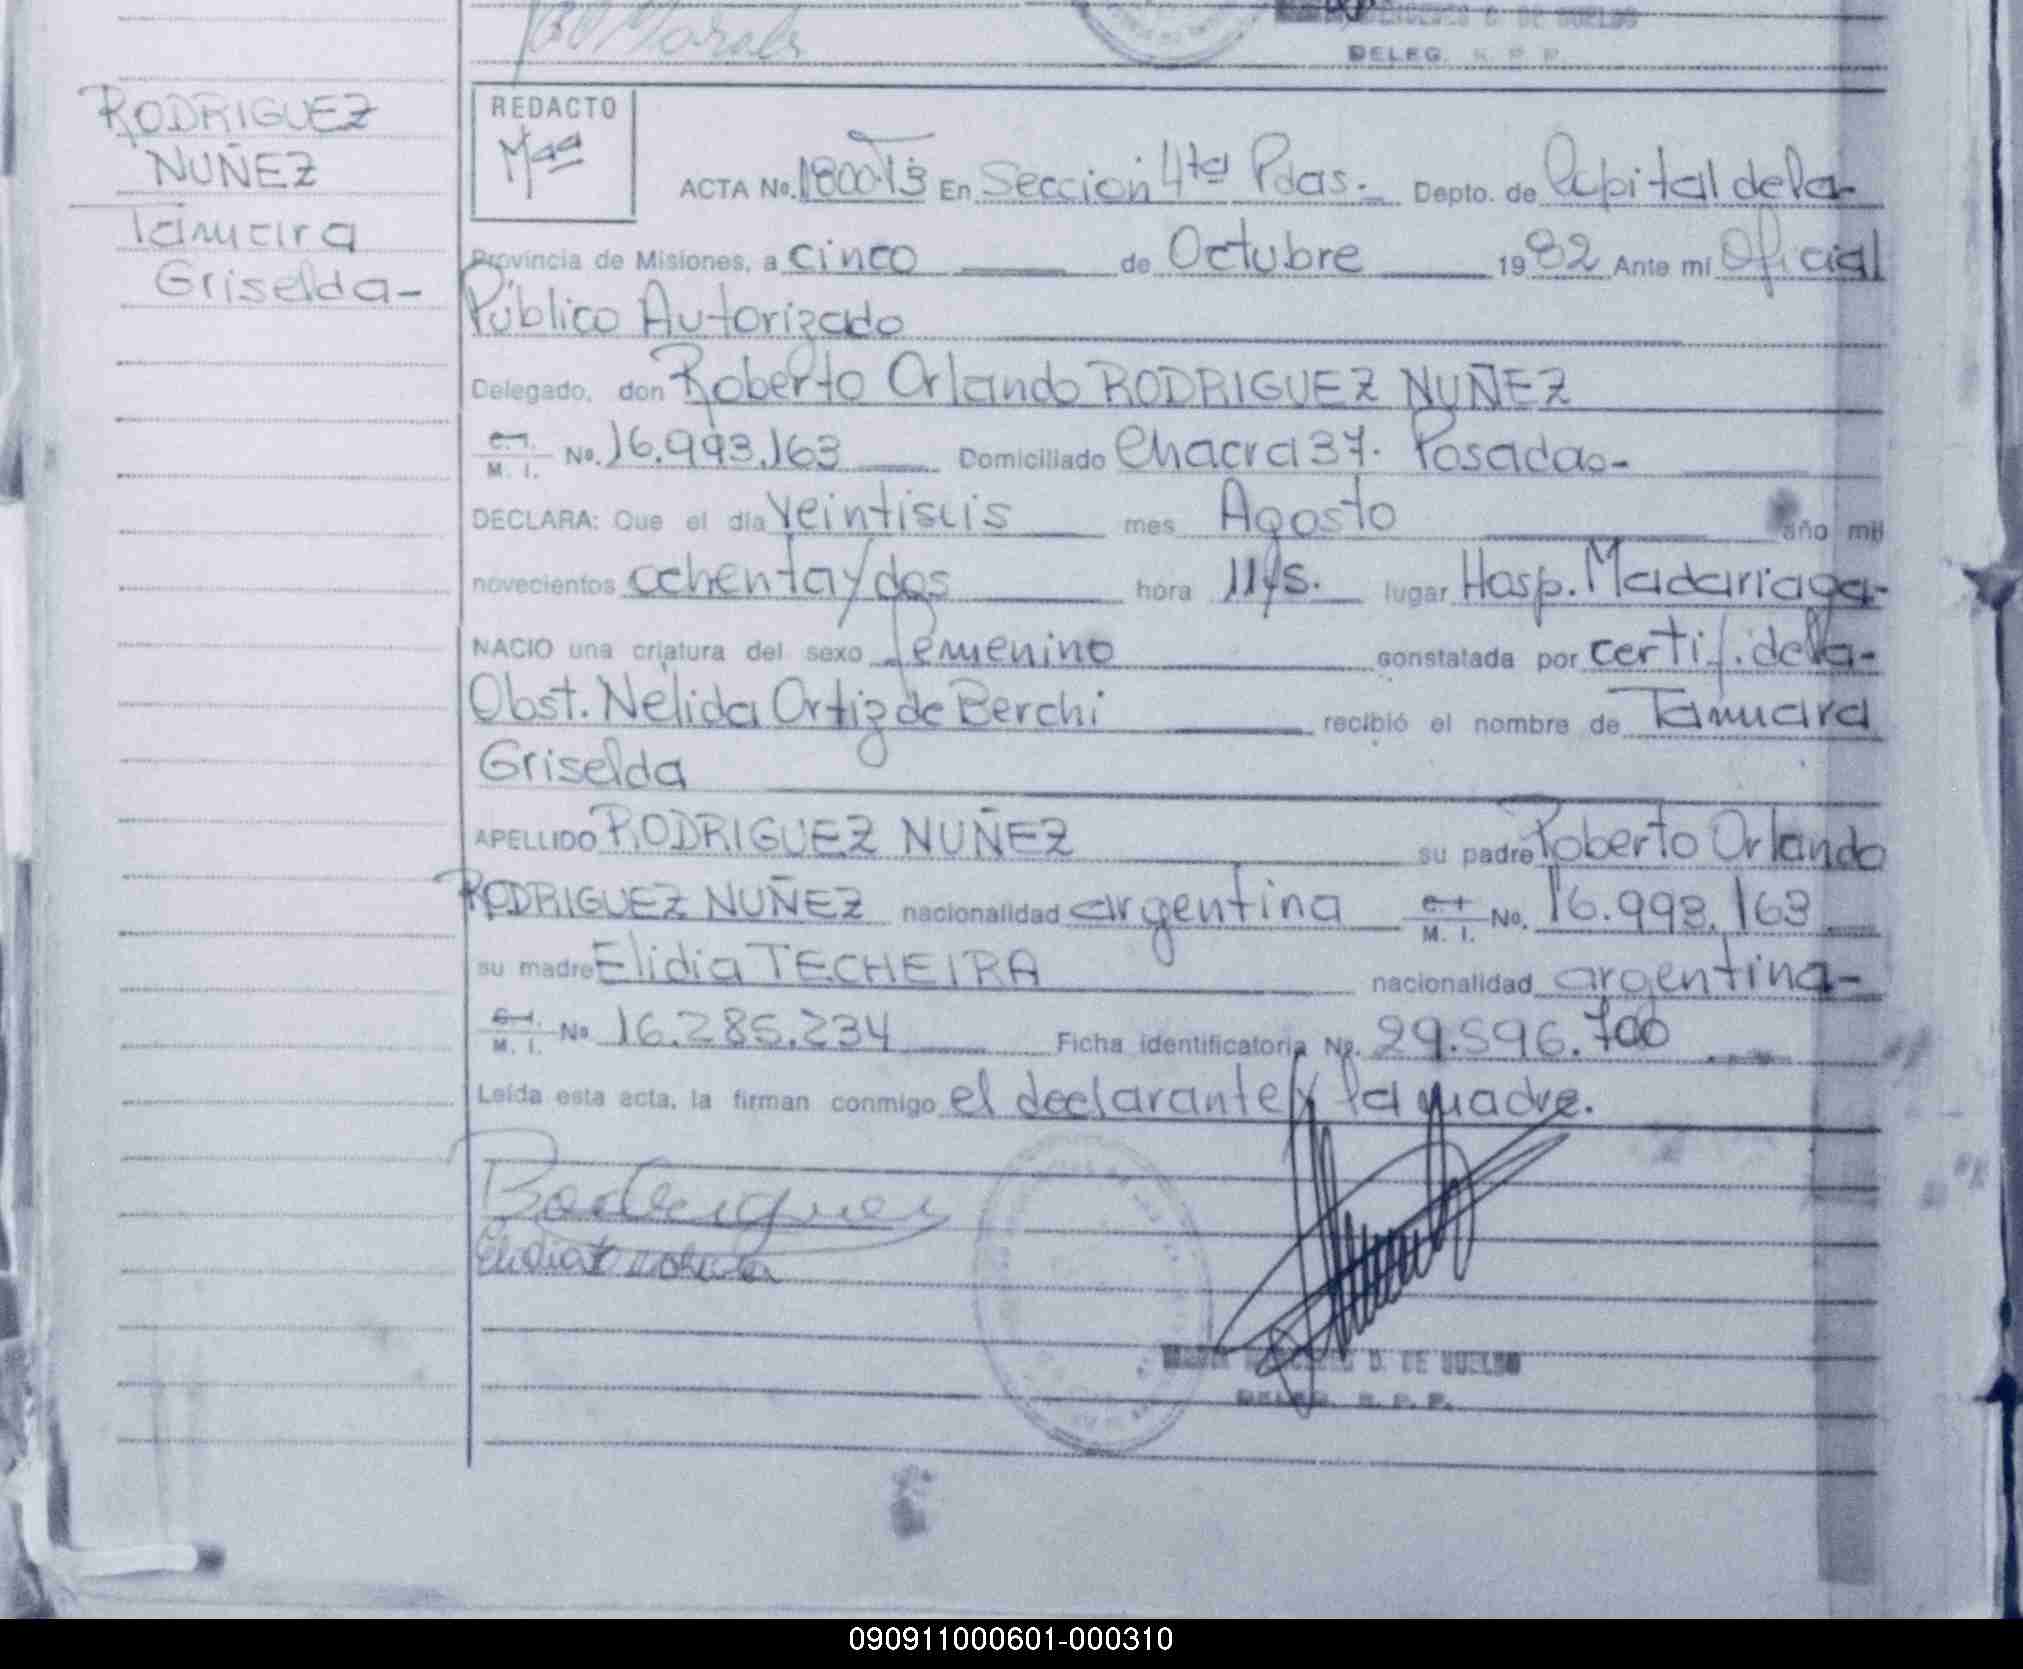 Morales
DE SUELDO
DELEG. R. P. P.
RODRIGUEZ
NUÑEZ
Tamara
Griselda-
REDACTO
ACTA No. En Sección 4ta Pdas.- Depto. de Capital de la-
Provincia de Misiones, a cinco de Octubre 1982 Ante mí Oficial
Público Autorizado
Delegado, don Roberto Orlando RODRIGUEZ NUÑEZ
C. I. M. I. No. 16.993.163 Domiciliado Chacra 37. Posadas-
DECLARA: Que el día Veintiseis mes Agosto año mil
novecientos ochenta y dos hora 11 hs. lugar Hosp. Madariaga-
NACIO una criatura del sexo femenino constatada por certif. de la-
Obst. Nelida Ortiz de Berchi recibió el nombre de Tamara
Griselda
APELLIDO RODRIGUEZ NUÑEZ su padre Roberto Orlando
RODRIGUEZ NUÑEZ nacionalidad argentina C. I. M. I. No. 16.993.163
su madre Elidia TECHEIRA nacionalidad argentina-
C. I. M. I. No 16.285.234 Ficha identificatoria No. 29.596.700
Leída esta acta, la firman conmigo el declarante y la madre.
Rodriguez
D. DE SUELDO
DELEG. R. P. P.
090911000601-000310